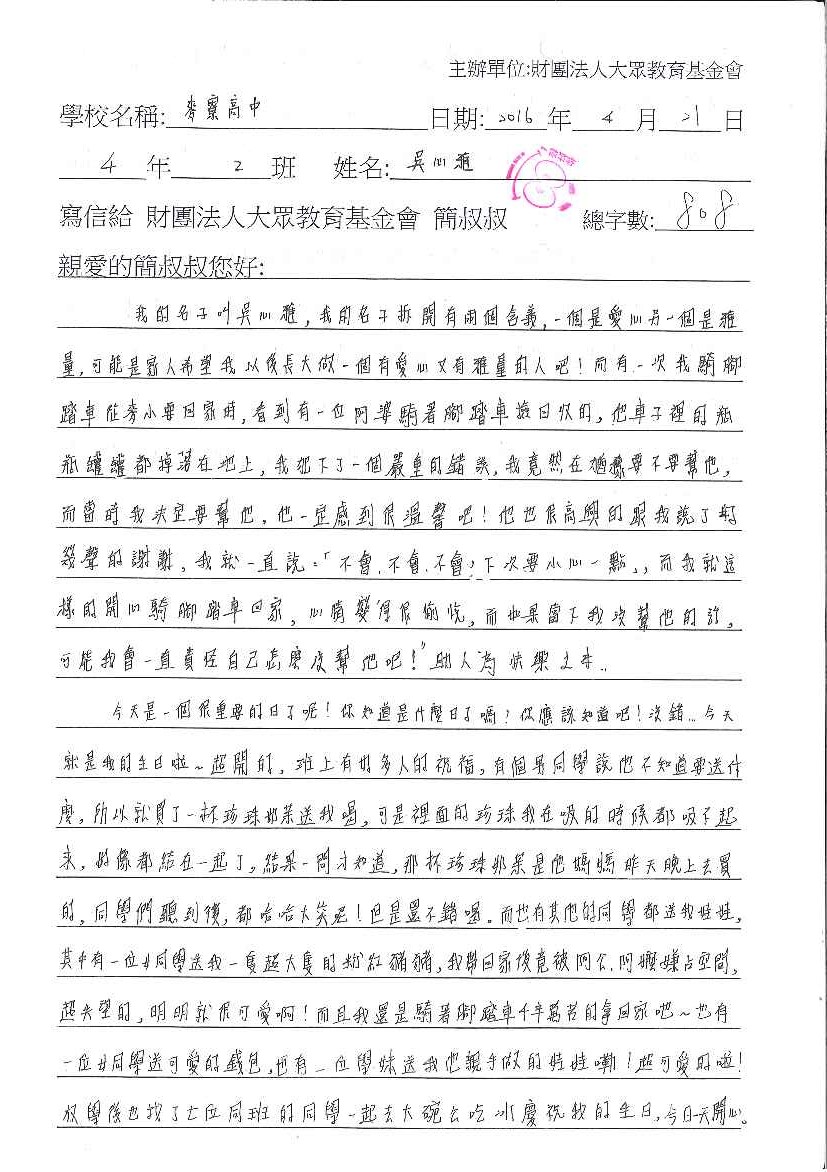 主辦單位:財團法人大眾教育基金會
學校名稱: 麥寮高中 日期: 2016 年 4 月 21 日
4 年 2 班 姓名: 吳心雅
寫信給 財團法人大眾教育基金會 簡叔叔 總字數: 808
親愛的簡叔叔您好:
我的名子叫吳心雅,我的名子拆開有兩個含義,一個是愛心另一個是雅
量,可能是家人希望我以後長大做一個有愛心又有雅量的人吧!而有一次我騎腳
踏車從麥小要回家時,看到有一位阿婆騎著腳踏車撿回收的,他車子裡的瓶
瓶罐罐都掉落在地上,我犯下了一個嚴重的錯誤,我竟然在猶豫要不要幫他,
而當時我決定要幫他,他一定感到很溫馨吧!他也很高興的跟我說了好
幾聲的謝謝,我就一直說:「不會.不會.不會,下次要小心一點」,而我就這
樣的開心騎腳踏車回家,心情變得很愉悅,而如果當下我沒幫他的話,
可能我會一直責怪自己怎麼沒幫他吧!"助人為快樂之本..
今天是一個很重要的日子呢!你知道是什麼日子嗎?你應該知道吧!沒錯...今天
就是我的生日啦~超開的,班上有好多人的祝福,有個男同學說他不知道要送什
麼,所以就買了一杯珍珠奶茶送我喝,可是裡面的珍珠我在吸的時候都吸不起
來,好像都結在一起了,結果一問才知道,那杯珍珠奶茶是他媽媽昨天晚上去買
的,同學們聽到後,都哈哈大笑呢!但是還不錯喝。而也有其他的同學都送我娃娃,
其中有一位女同學送我一隻超大隻的粉紅豬豬,我帶回家後竟被阿公.阿嬤嫌占空間,
超失望的,明明就很可愛啊!而且我還是騎著腳踏車千辛萬苦的拿回家吧~也有
一位女同學送可愛的錢包,也有一位學妹送我他親手做的娃娃嘞!超可愛的啦!
放學後也找了七位同班的同學一起去大碗公吃冰慶祝我的生日,今日一天開心。